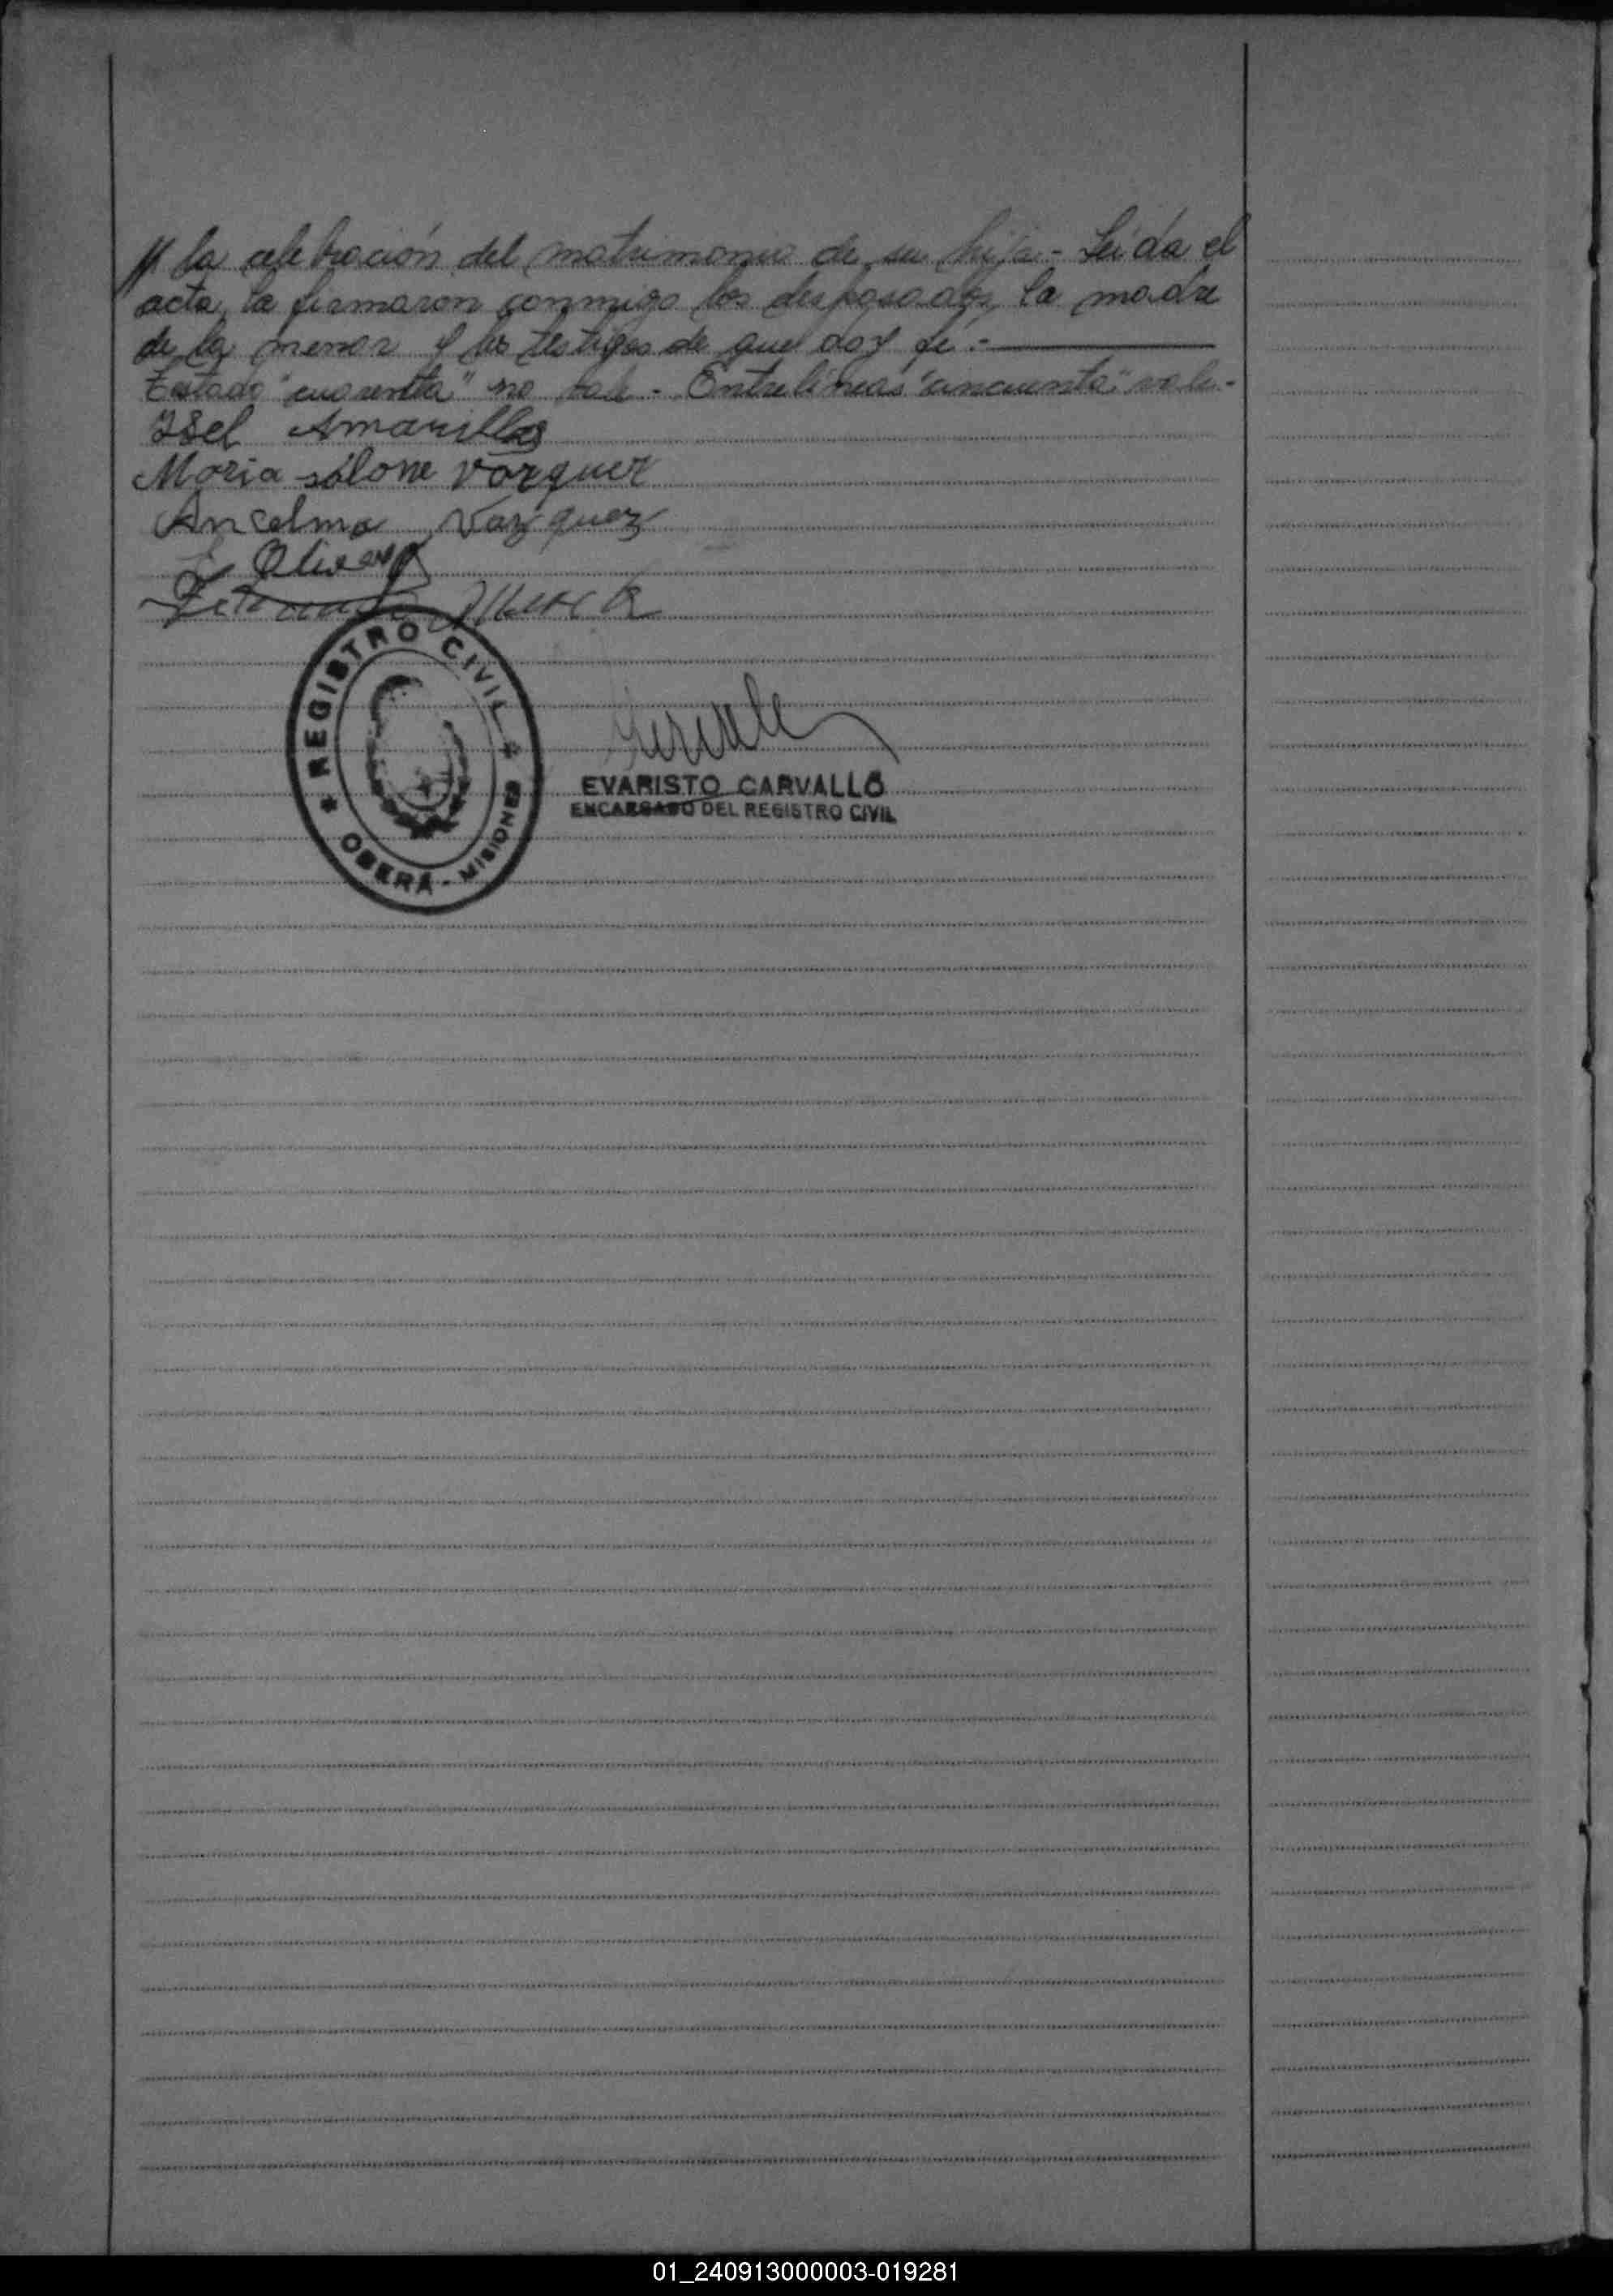 // la celebración del matrimonio de su hija - Leída el
acta, la firmaron conmigo los desposados, la madre
de la menor y los testigos de que doy fé.-
Testado "cuarenta" no vale - Entrelíneas "cincuenta" vale.-
Isel Amarilla
Moria salone vazquez
Anselma Vazquez
Olivera
REGISTRO CIVIL
OBERÁ - MISIONES
EVARISTO CARVALLO
ENCARGADO DEL REGISTRO CIVIL
01_240913000003-019281